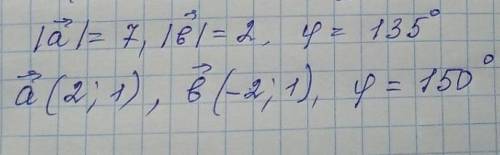 |a⃗|= 7, |b⃗|= 2, φ = 135°
a⃗(2; 1), b⃗(-2; 1), φ = 150°